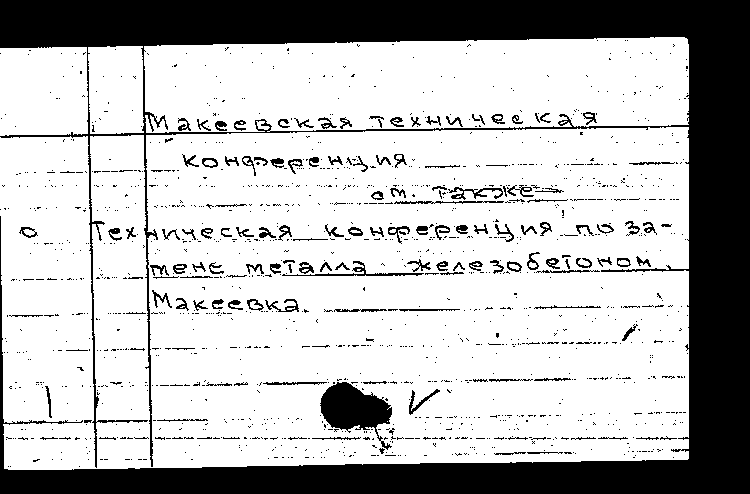 Макеевская техническая
конференция
см. также
о Техническая конференция по за-
мене металла железобетоном.
Макеевка.